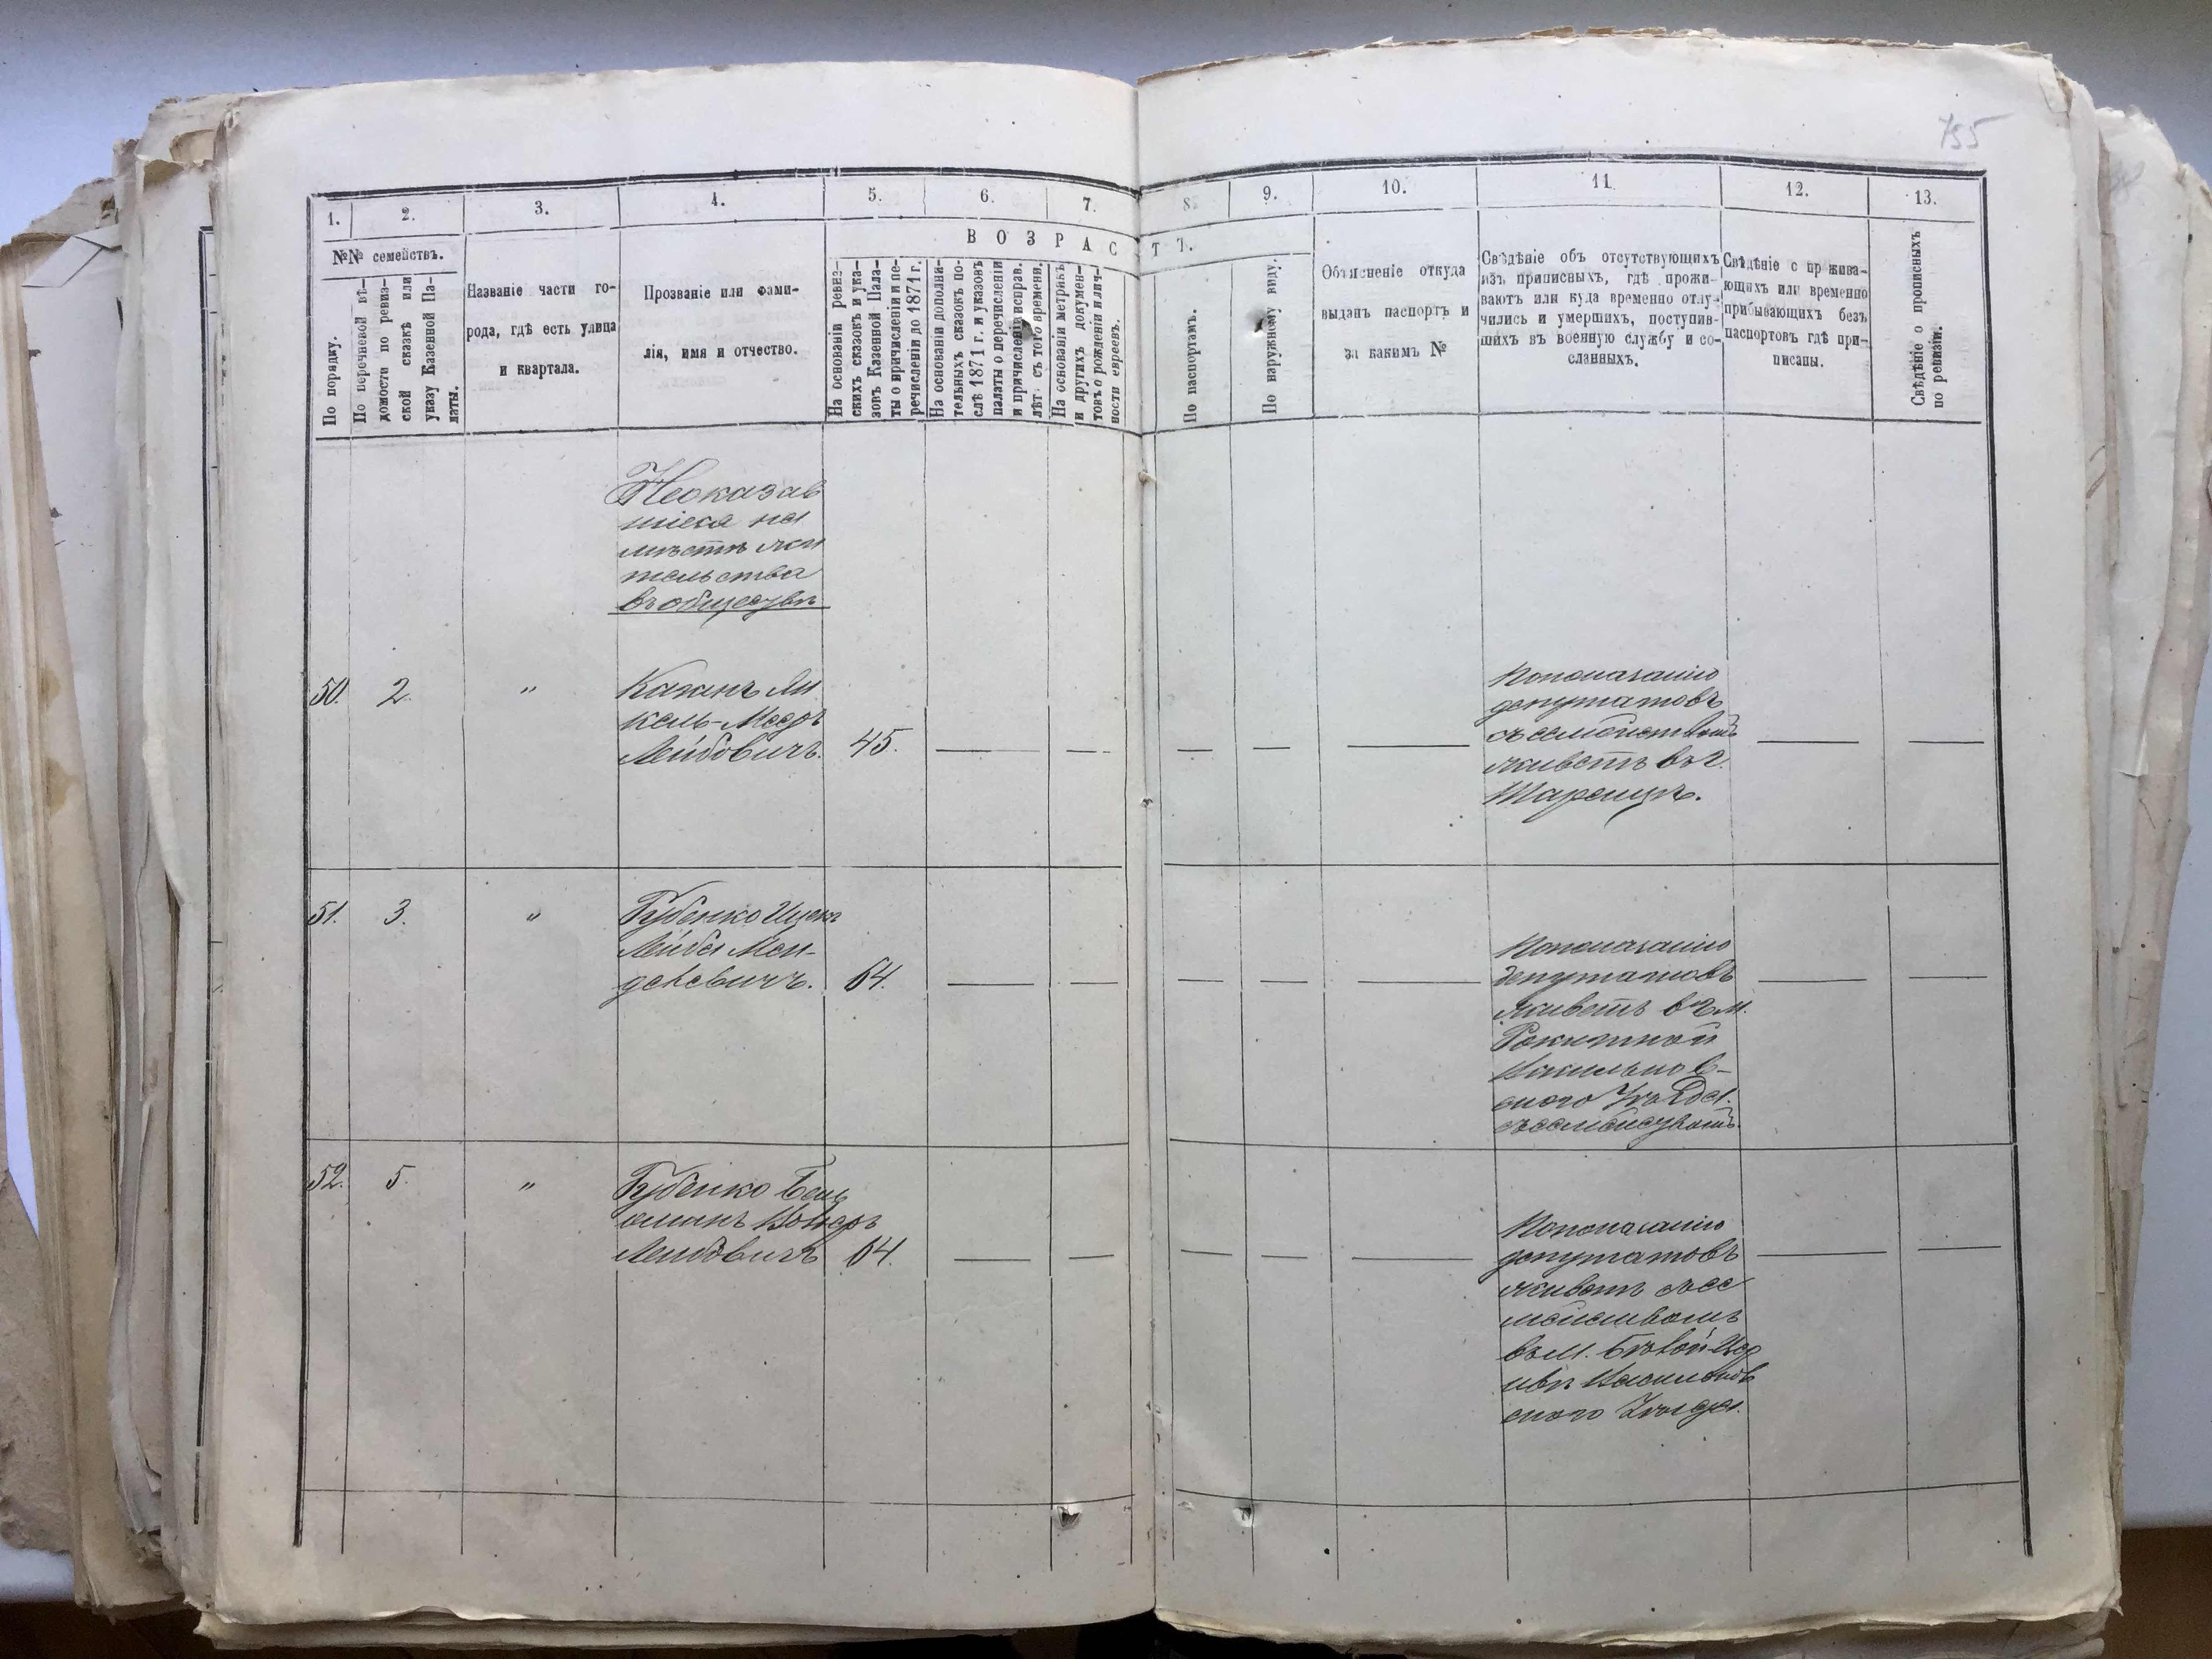 755
1.
2.
3.
4.
5.
6.
7.
8.
9.
10.
11.
12.
13.
№№ семействъ.
ВОЗРАСТЪ.
По порядку.
По перечневой вѣ-
домости по ревиз-
ской сказкѣ или
указу Казенной Па-
латы.
Названіе части го-
рода, гдѣ есть улица
и квартала.
Прозваніе или фами-
лія, имя и отчество.
На основаніи ревиз-
скихъ сказокъ и ука-
зовъ Казенной Пала-
ты о причисленіи и пе-
речисленіи до 1871 г.
На основаніи дополни-
тельныхъ сказокъ по-
слѣ 1871 г. и указовъ
палаты о перечисленіи
и причисленіи исправ.
лѣт. съ того времени.
На основаніи метрикъ
и другихъ докумен-
товъ о рожденіи и лич-
ности евреевъ.
По паспортамъ.
По наружному виду.
Объясненіе откуда
выданъ паспортъ и
за какимъ №
Свѣдѣніе объ отсутствующихъ
изъ приписныхъ, гдѣ прожи-
ваютъ или куда временно отлу-
чились и умершихъ, поступив-
шихъ въ военную службу и со-
сланныхъ.
Свѣдѣніе о прожива-
ющихъ или временно
прибывающихъ безъ
паспортовъ гдѣ при-
писаны.
Свѣдѣніе о прописныхъ
по ревизіи.
Неоказав
шіеся на
мѣстѣ жи
тельства
въ обществѣ
50. 2. " Каганъ Ян
кель-Мееръ
Лейбовичъ. 45.
По показанію
депутатовъ
съ семействомъ
живетъ въ г.
Таращѣ.
51. 3. " Губенко Ицекъ
Лейба Мен-
делевичъ. 64.
По показанію
депутатовъ
живетъ въ м.
Рокитной
Васильков-
скаго Уѣзда.
съ семействомъ.
52. 5. " Губенко Бень
Лейбовичъ 64.
По показанію
депутатовъ
живетъ съ се
мействомъ
въ м. Бѣлой-Цер
квѣ Васильков
скаго Уѣзда.